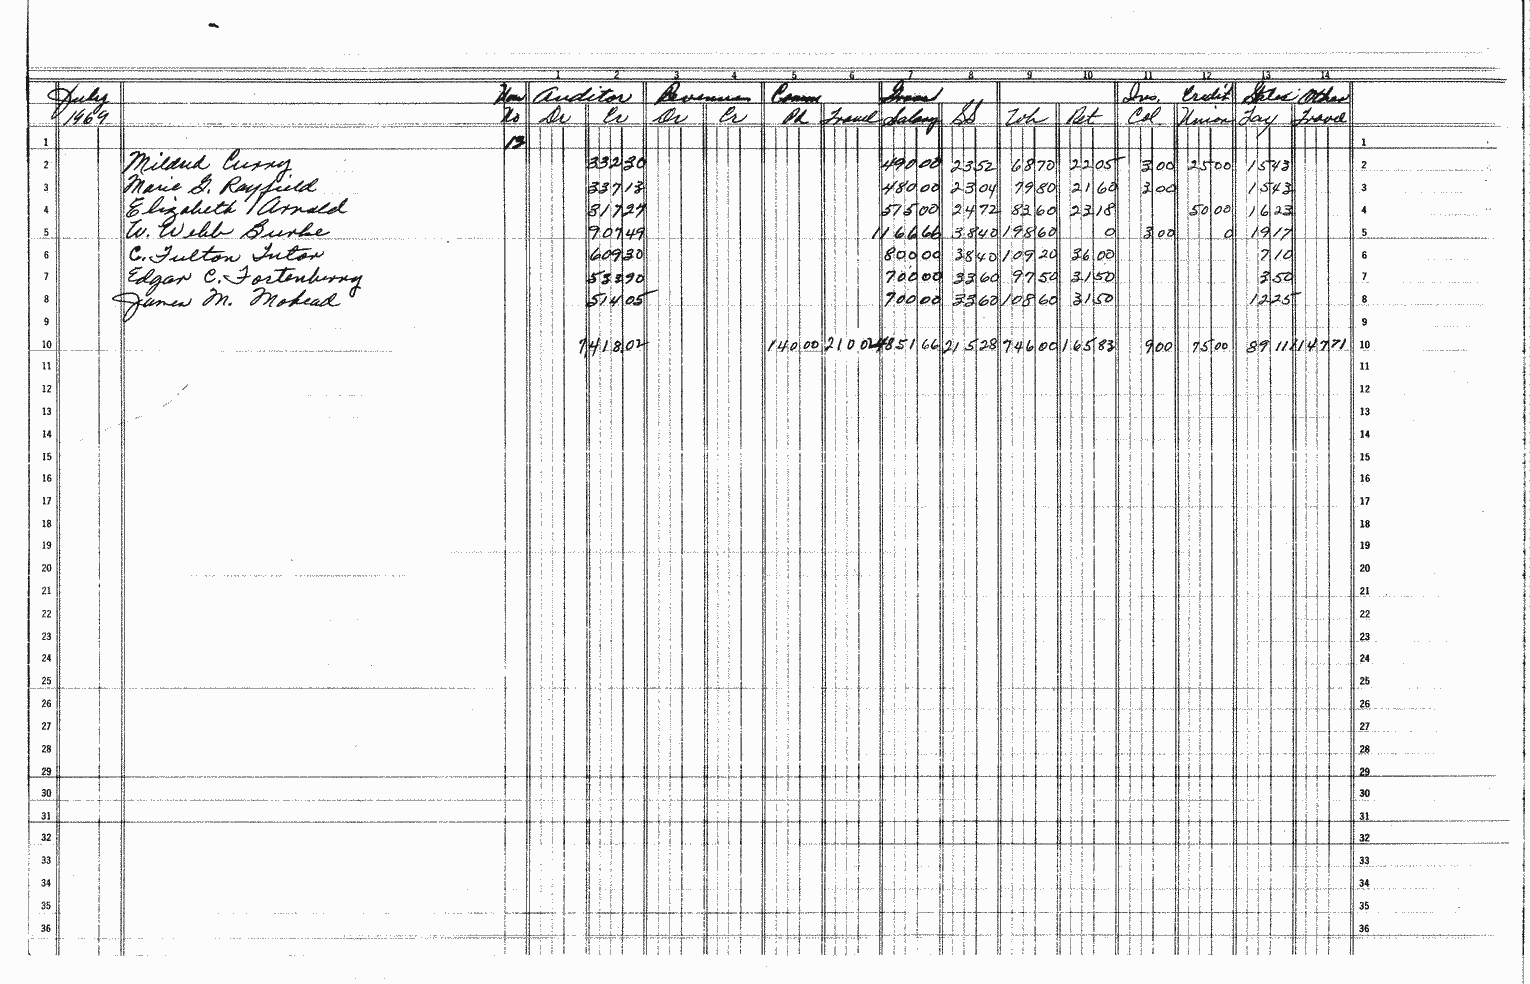 1 2 3 4 5 6 7 8 9 10 11 12 13 14
July Auditor Revenues Comm Gross Ins. Credit Sales Other
1969 No Dr Cr Dr Cr Pd Travel Salary SS Wh Ret Col Union Tax Travel
1 13 1
2 Mildred Curry 332 30 490 00 23 52 68 70 22 05 3 00 25 00 15 43 2
3 Marie G. Rayfield 337 13 480 00 23 04 79 80 21 60 3 00 15 43 3
4 Elizabeth Arnold 817 27 515 00 24 72 83 60 23 18 50 00 16 23 4
5 W. Webb Burke 907 49 1166 66 38 40 198 60 0 3 00 0 19 17 5
6 C. Fulton Tutor 609 30 800 00 38 40 109 20 36 00 7 10 6
7 Edgar C. Fortenberry 533 90 700 00 33 60 97 50 31 50 3 50 7
8 James M. Mohead 514 05 700 00 33 60 108 60 31 50 12 25 8
9 9
10 7418.02 140 00 210 02 4851 66 215 28 746 00 165 83 9 00 75 00 89 11 1147 71 10
11 11
12 12
13 13
14 14
15 15
16 16
17 17
18 18
19 19
20 20
21 21
22 22
23 23
24 24
25 25
26 26
27 27
28 28
29 29
30 30
31 31
32 32
33 33
34 34
35 35
36 36